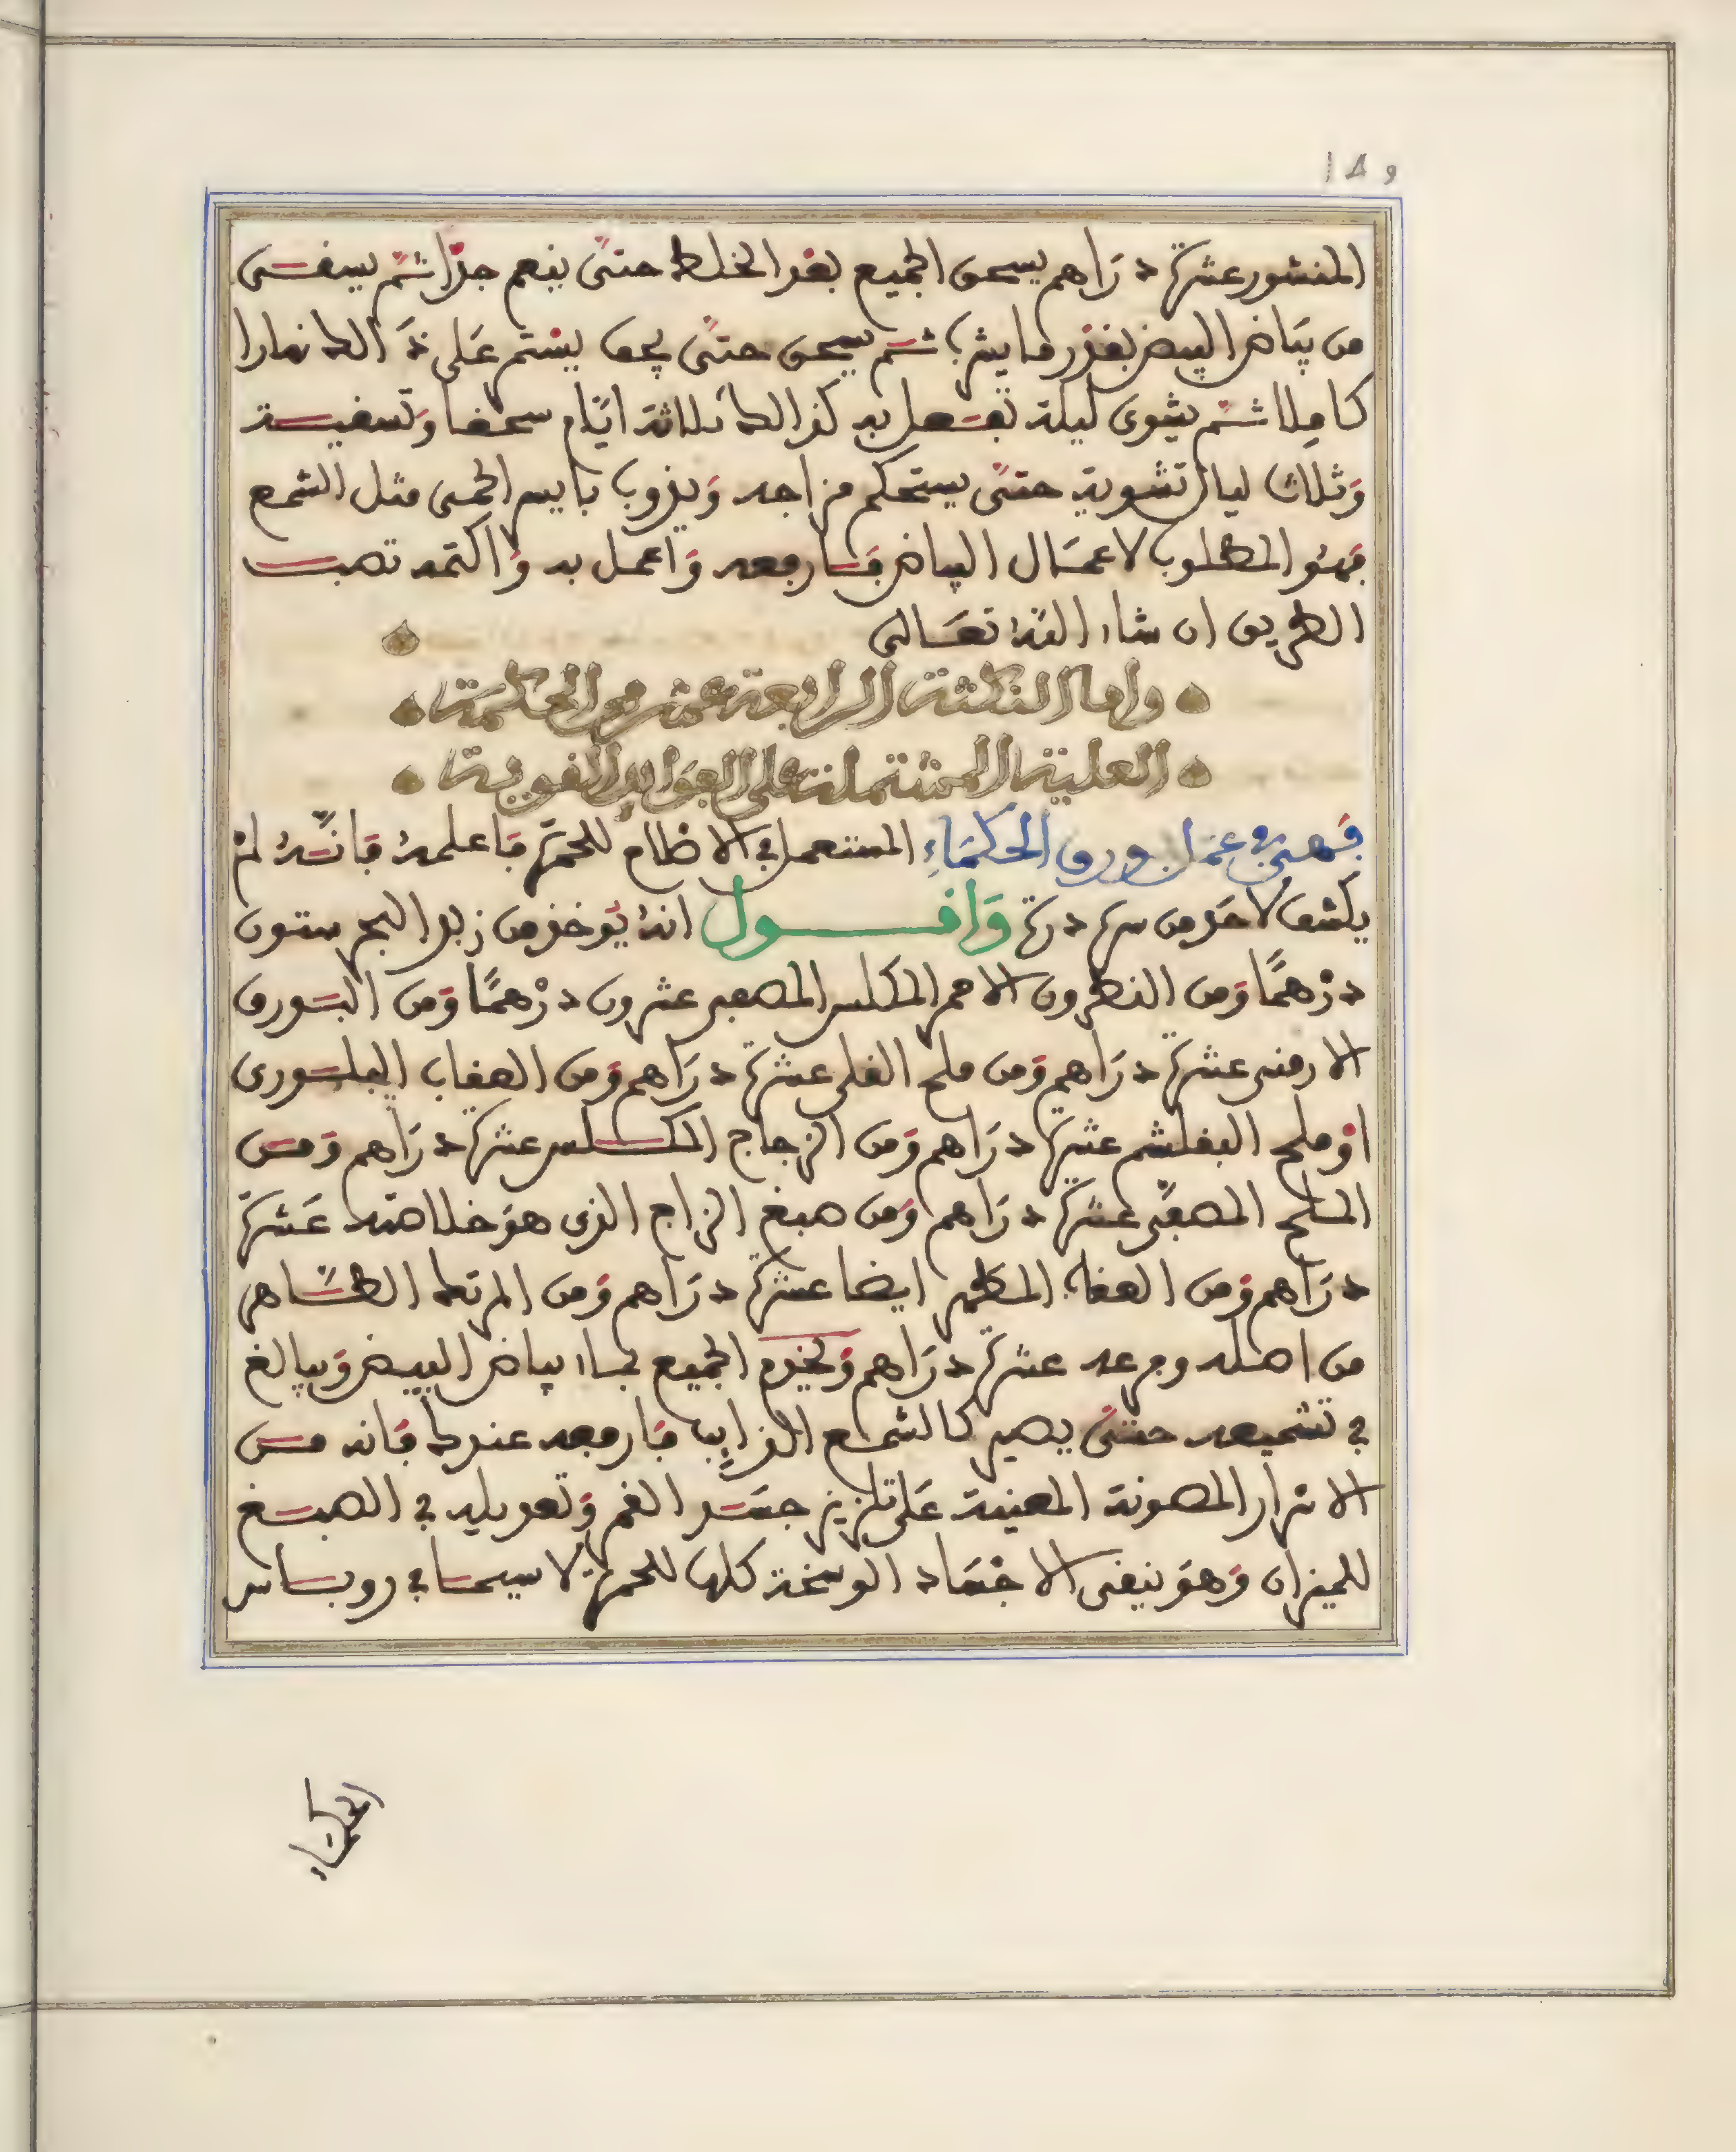 المنشور عشرة دَراهم يسحق الجميع بعد الخلط حتىّ ينعم جدّا ثمّ يسقـى
من بيَاض البيض بقدر ما يشرب ثمّ يسحق حتىّ يجف يستم عَلى ذَالك نهارا
كاملا ثمّ يشوى ليلة تفعل به كذالك ثلاثة ايّام سحقا وَتسقيـة
وَثلاث ليال تشوية حتىّ يستحكم مزاجه وَيذوب بايسر الحمى مثل الشمع
فهُو المطلوب لاعمَال البياض فَارفعه وَاعمل به وَاكتمه تصب
الطريق ان شاء اللهُ تعَـالى
واما النكتة الرابعة عشر من الحكمة
العلية المشتملة على الفوايد القوية
فَهى في عمل بورق الحكمَاءِ المستعمل في الاظام للحمرة فاعلمهُ فانّهُ لمْ
يكشف لاحَد من سره ذرة وَاقــول انهُ يُوخذ من زبد البحر ستون
درْهمًا وَمن النطرون الاحمر المكلس المصعد عشرون درْهمًا وَمن البَورق
الارمنى عشرة دَراهم وَمن ملح القلى عشرة دَراهم وَمن العقاب البلـورى
اوْ ملح البقلشم عشرة دَراهم وَمن الزجاج المكلـس عشرة دَراهم وَمـن
الملح المصعّد عشرة دَراهم وَمن صبغ الزاج الذى هوَ خلاصته عَشرة
دَراهم وَمن العقاب المطهر ايضا عشرة دَراهم وَمن المرتك الطّـاهر
من اصله وفرعه عشرة دَراهم وَيخدم الجميع بماء بياض البيض وَيبالغ
في تشميعه حتىّ يصير كالشمـع الذايِب فَارفعه عندك فَانه مـن
الاسرار المصونة المعينة عَلى تلزيز جسَـد القمر وَتعديله في الصبـغ
للميزان وَهوَ ينقى الاجْسَاد الوسخة كلها للحمرة لا سيمـا في روبـاس
الحكماء